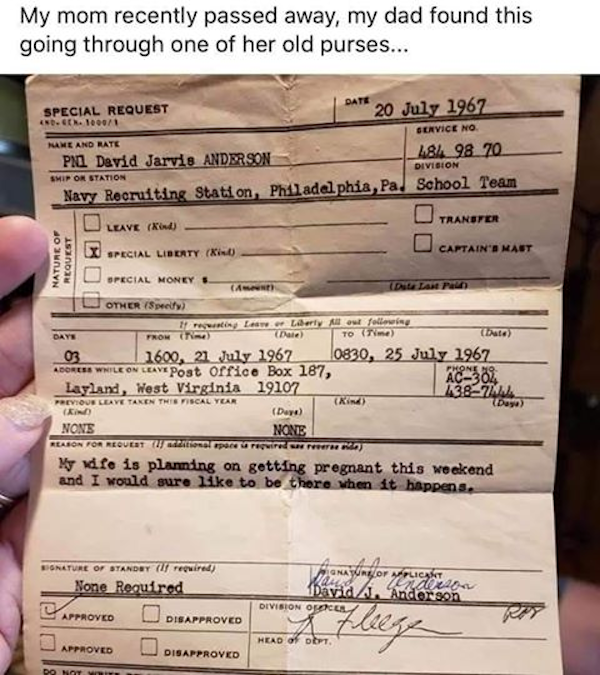 My mom recently passed away, my dad found this
going through one of her old purses...
SPECIAL REQUEST
DATE
20 July 1967
SERVICE NO.
NAME AND RATE
484 98 70
PN1 David Jarvis ANDERSON
DIVISION
SHIP OR STATION
Navy Recruiting Station, Philadelphia, Pa. School Team
NATURE OF REQUEST
LEAVE (Kind)
TRANSFER
X SPECIAL LIBERTY (Kind)
CAPTAIN'S MAST
SPECIAL MONEY $
(Amount)
(Date Last Paid)
OTHER (Specify)
If requesting Leave or Liberty fill out following
DAYS
FROM (Time)
(Date)
TO (Time)
(Date)
03
1600, 21 July 1967
0830, 25 July 1967
ADDRESS WHILE ON LEAVE Post Office Box 187,
PHONE NO.
AC-304
Layland, West Virginia 19107
438-7444
PREVIOUS LEAVE TAKEN THIS FISCAL YEAR
(Kind)
(Days)
(Kind)
(Days)
NONE
NONE
REASON FOR REQUEST (If additional space is required use reverse side)
My wife is planning on getting pregnant this weekend
and I would sure like to be there when it happens.
SIGNATURE OF STANDBY (If required)
SIGNATURE OF APPLICANT
David J. Anderson
None Required
David J. Anderson
APPROVED
DISAPPROVED
DIVISION OFFICER
APPROVED
DISAPPROVED
HEAD OF DEPT.
DO NOT